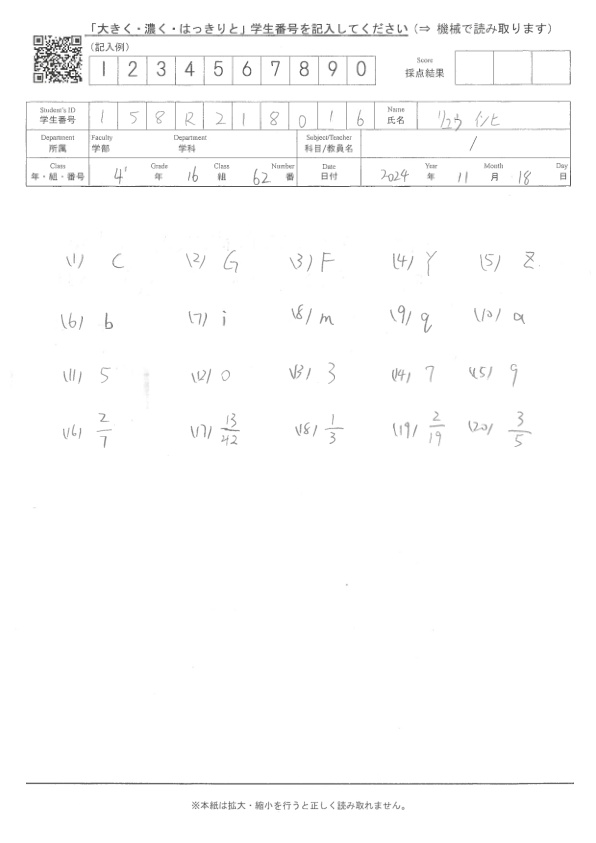 「大きく・濃く・はっきりと」学生番号を記入してください（⇒ 機械で読み取ります）
（記入例）
1 2 3 4 5 6 7 8 9 0
Score
採点結果
Student's ID
学生番号
1 5 8 R 2 1 8 0 1 6
Name
氏名
リュウ インヒ
Department
所属
Faculty
学部
Department
学科
Subject/Teacher
科目/教員名
/
Class
年・組・番号
4 Grade 年
16 Class 組
62 Number 番
Date
日付
2024 Year 年
11 Month 月
18 Day 日
(1) C (2) G (3) F (4) Y (5) Z
(6) b (7) i (8) m (9) q (10) a
(11) 5 (12) 0 (13) 3 (14) 7 (15) 9
(16) 2/7 (17) 13/42 (18) 1/3 (19) 2/19 (20) 3/5
※本紙は拡大・縮小を行うと正しく読み取れません。